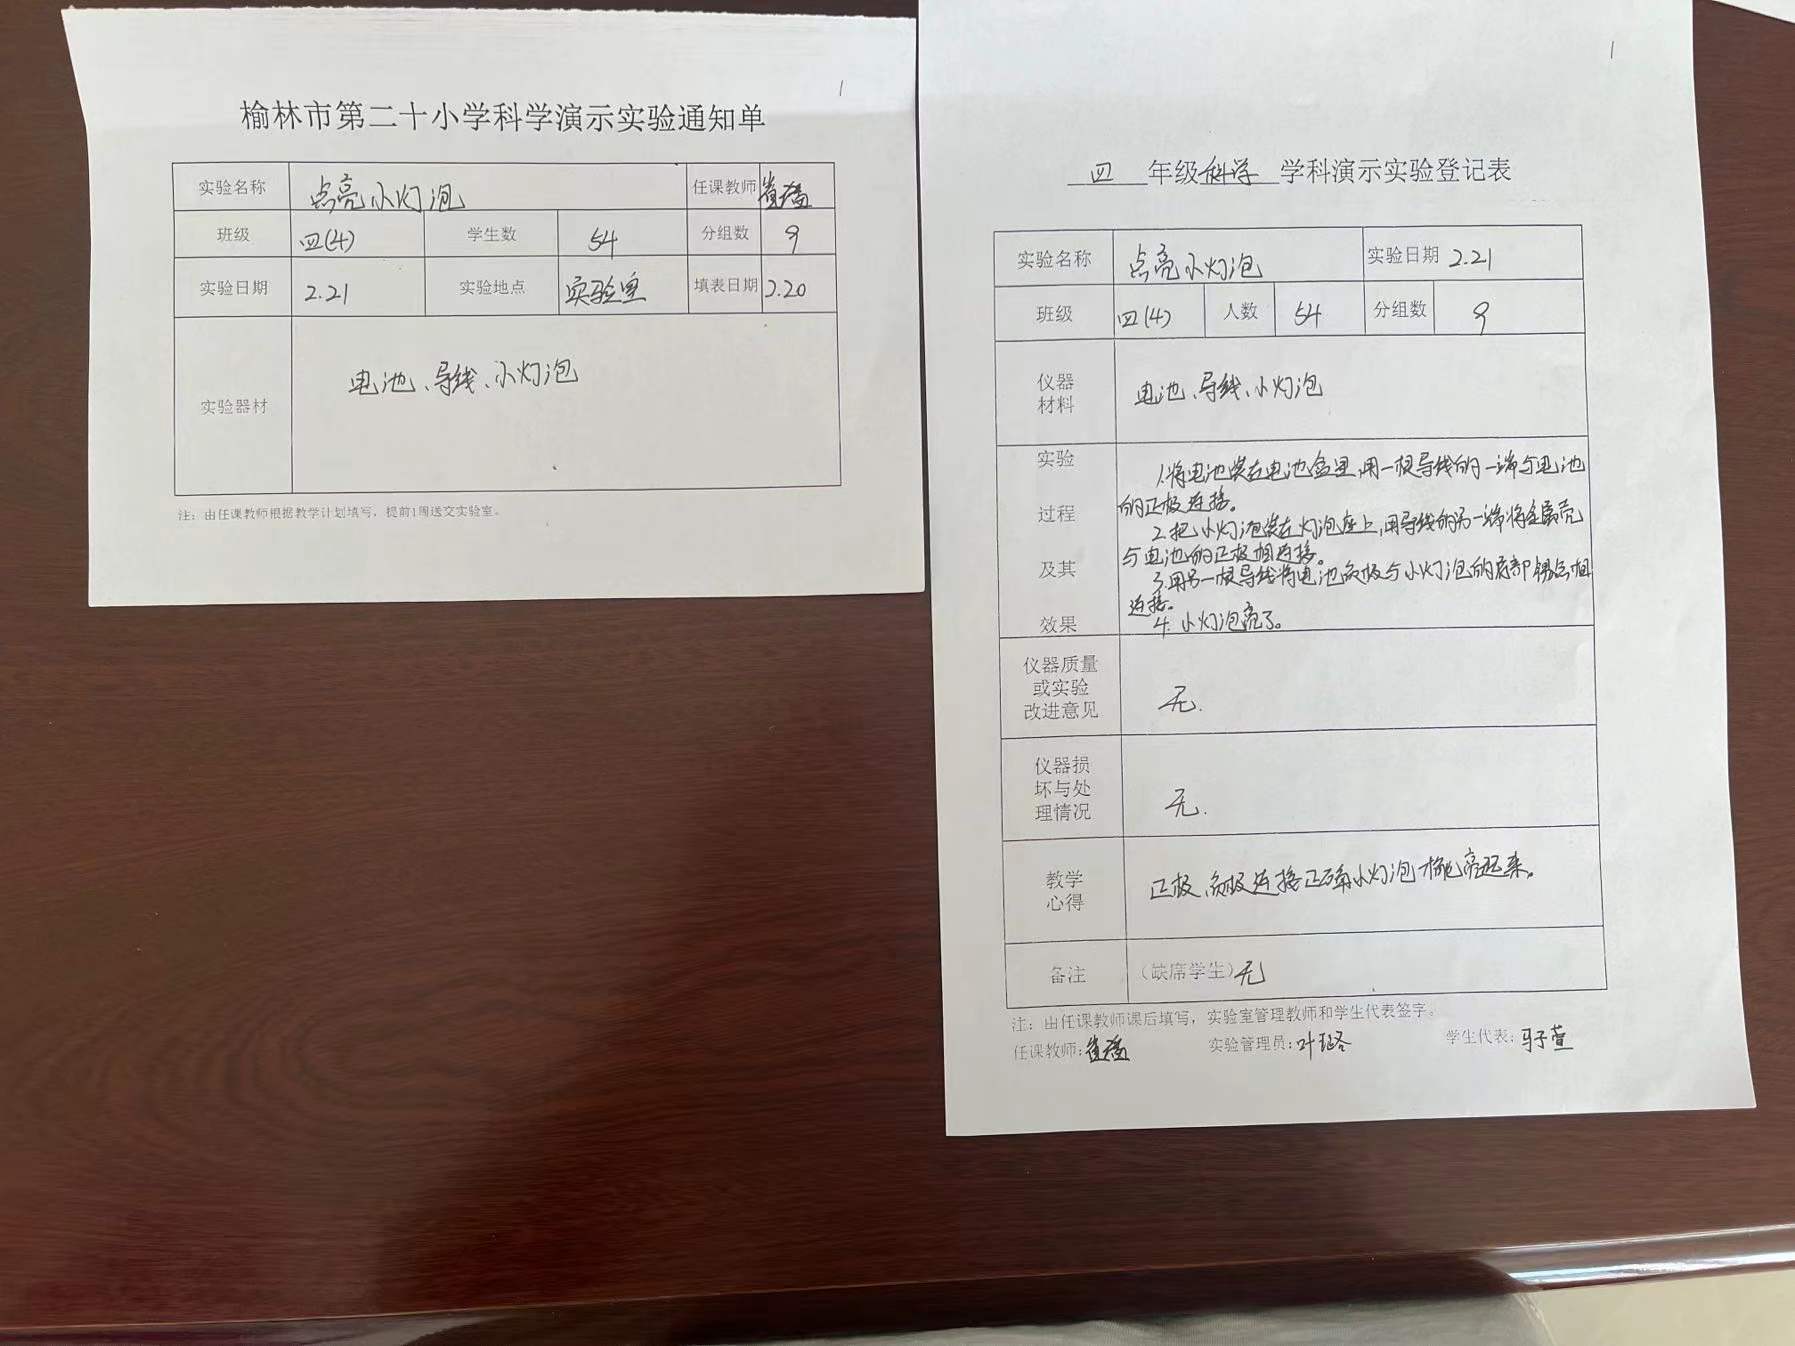 1
榆林市第二十小学科学演示实验通知单
实验名称 点亮小灯泡 任课教师
班级 四(4) 学生数 54 分组数 9
实验日期 2.21 实验地点 实验室 填表日期 2.20
实验器材 电池、导线、小灯泡
注：由任课教师根据教学计划填写，提前1周送交实验室。
1
四 年级 科学 学科演示实验登记表
实验名称 点亮小灯泡 实验日期 2.21
班级 四(4) 人数 54 分组数 9
仪器
材料
电池、导线、小灯泡
实验
过程
及其
效果
1.将电池装在电池盒里,用一根导线的一端与电池
的正极连接。
2.把小灯泡装在灯泡座上,用导线的另一端将金属壳
与电池的正极相连接。
3.用另一根导线将电池负极与小灯泡的底部锡点相
连接。
4.小灯泡亮了。
仪器质量
或实验
改进意见
无.
仪器损
坏与处
理情况
无.
教学
心得
正极、负极连接正确小灯泡才能亮起来。
备注 (缺席学生)无
注：由任课教师课后填写，实验室管理教师和学生代表签字。
任课教师: 实验管理员:叶 学生代表:马子萱